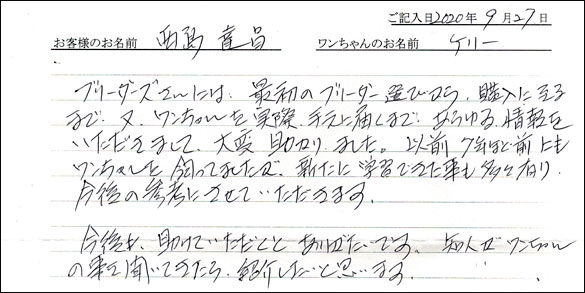 ご記入日2020年9月27日
お客様のお名前 西島 竜昌 ワンちゃんのお名前 ケリー
ブリーダーズさんには、最初のブリーダー選びから、購入に至る
まで、又、ワンちゃんを実際、手元に届くまで、あらゆる情報を
いただきまして、大変助かりました。以前7年ほど前にも
ワンちゃんを飼ってましたが、新たに学習できた事も多々有り、
今後の参考にさせていただきます。
今後も、助けていただくとありがたいです。知人がワンちゃん
の事を聞いてきたら、紹介したいと思います。